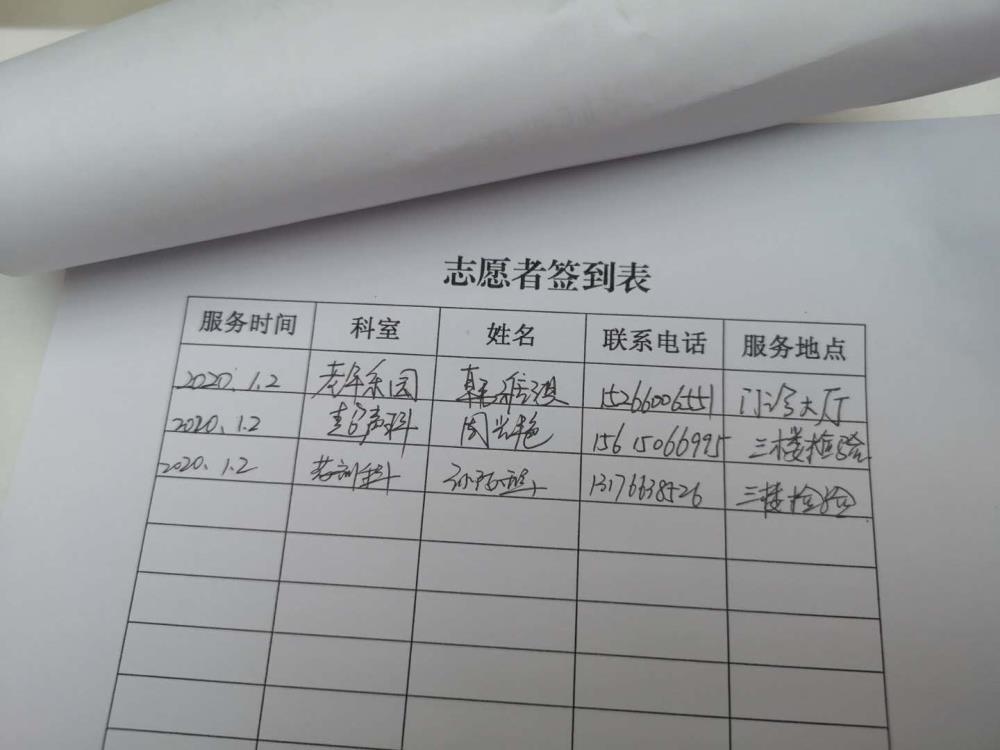 志愿者签到表
服务时间 科室 姓名 联系电话 服务地点
2020.1.2 老年乐园 韩 15266006551 门诊大厅
2020.1.2 超声科 周兴艳 15615066995 三楼检验
2020.1.2 13176638526 三楼检验